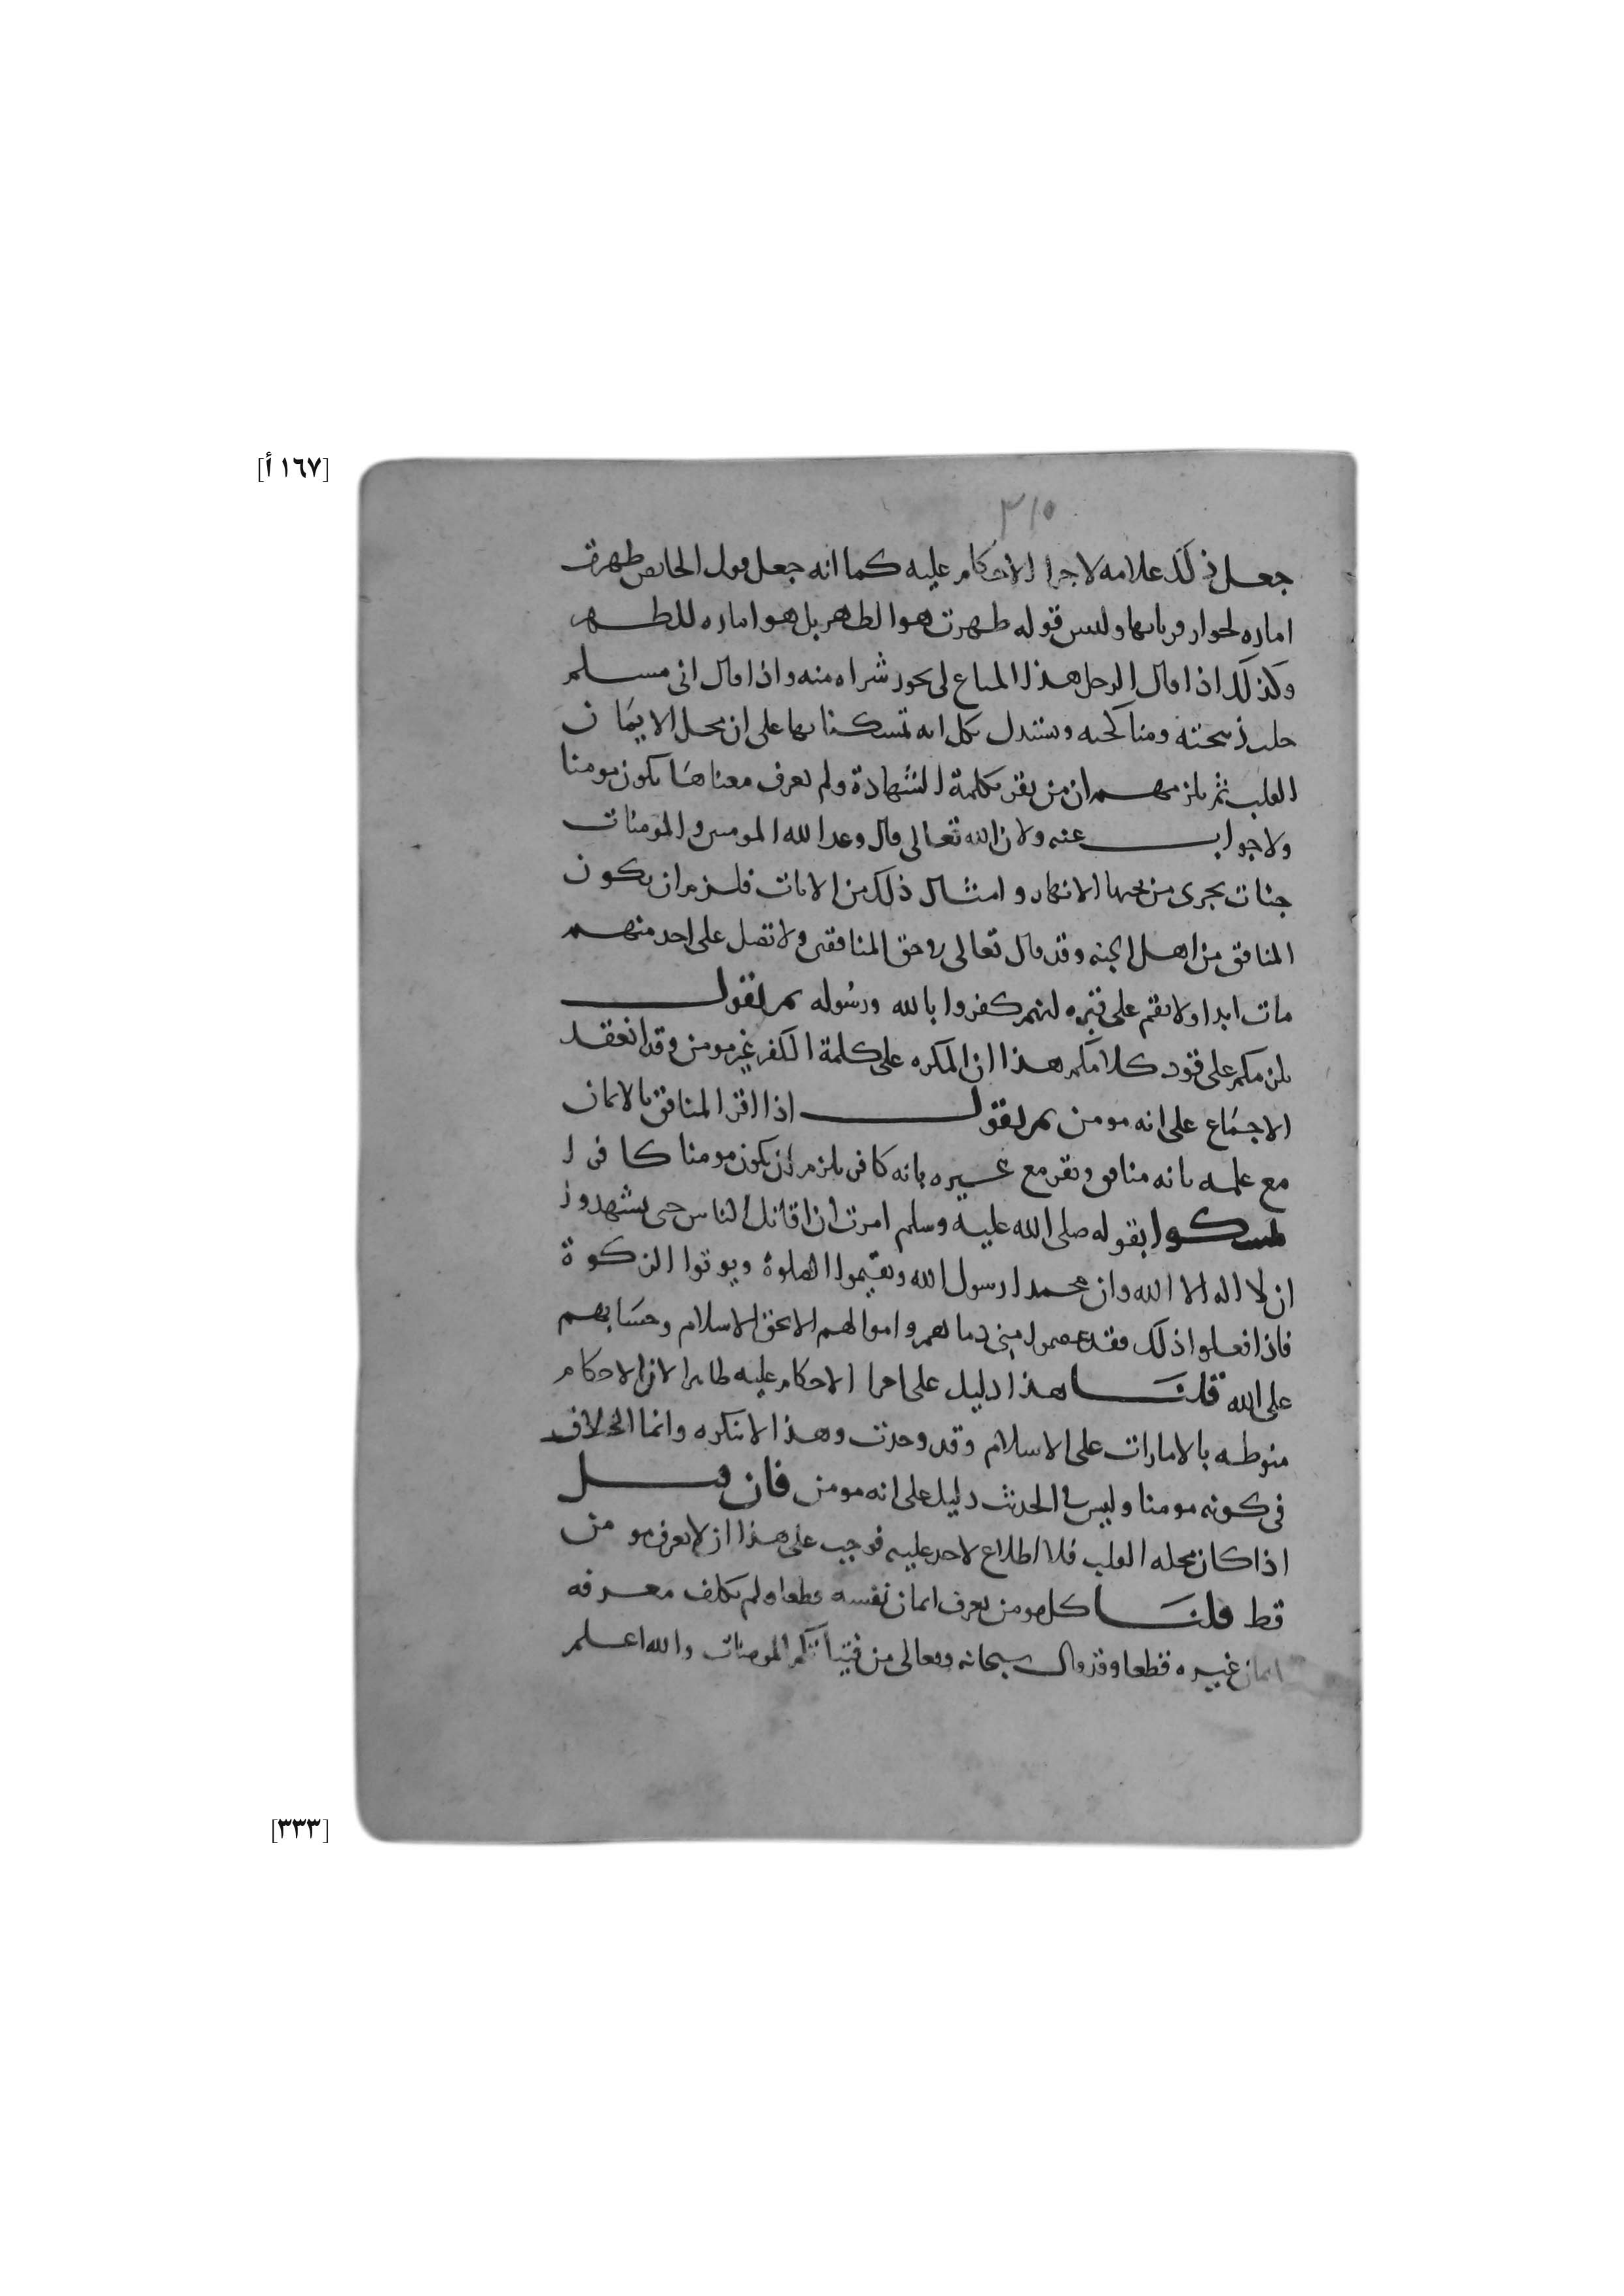 [١٦٧ أ]
٣١٥
جعل ذلك علامه لاجرا الاحكام عليه كما انه جعل قول الحايض طهرت
اماره لجواز قربانها وليس قوله طهرت هو الطهر بل هو اماره للطهر
وكذلك اذا قال الرجل هذا المتاع لى يجوز شراه منه واذا قال انى مسلم
حلت ذبيحته ومناكحته ويستدل بكل ايه تمسكنا بها على ان محل الايمان
القلب ثم يلزمهم ان من يقر بكلمة الشهادة ولم يعرف معناها يكون مومنا
ولا جواب عنه ولان الله تعالى قال وعد الله المومنين والمومنات
جنات تجرى من تحتها الانهار وامثال ذلك من الايات فلزم ان يكون
المنافق من اهل الجنه وقد قال تعالى فى حق المنافقين ولا تصل على احد منهم
مات ابدا ولا تقم على قبره انهم كفروا بالله ورسوله ثم نقول
يلزمكم على قود كلامكم هذا ان المكره على كلمة الكفر غير مومن وقد انعقد
الاجماع على انه مومن ثم نقول اذا اقر المنافق بالايمان
مع علمه بانه منافق ويقر مع غيره بانه كافر يلزم ان يكون مومنا كافرا
تمسكوا بقوله صلى الله عليه وسلم امرت ان اقاتل الناس حتى يشهدوا
ان لا اله الا الله وان محمدا رسول الله ويقيموا الصلوة ويوتوا الزكوة
فاذا فعلوا ذلك فقد عصموا منى دماهم واموالهم الا بحق الاسلام وحسابهم
على الله قلنا هذا دليل على اجرا الاحكام عليه ظاهرا لان الاحكام
منوطه بالامارات على الاسلام وقد وجدت وهذا لا ننكره وانما الخلاف
فى كونه مومنا وليس فى الحديث دليل على انه مومن فان قيل
اذا كان محله القلب فلا اطلاع لاحد عليه فوجب على هذا ان لا يعرف مومن
قط قلنا كل مومن يعرف ايمان نفسه قطعا ولم يكلف معرفه
ايمان غيره قطعا وقد قال سبحانه وتعالى من فتياتكم المومنات والله اعلم
[٣٣٣]